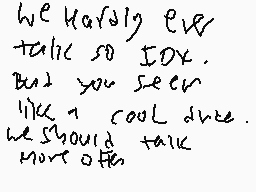 we Hardly ever
talk so IDK.
But you seem
like a cool dude.
we should talk
more often